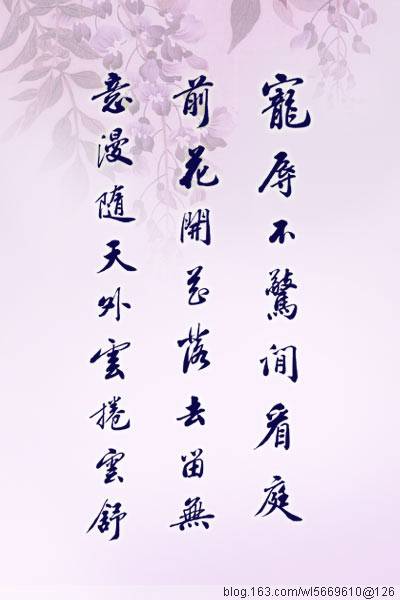 寵辱不驚閒看庭
前花開花落去留無
意漫隨天外雲捲雲舒
blog.163.com/wl5669610@126